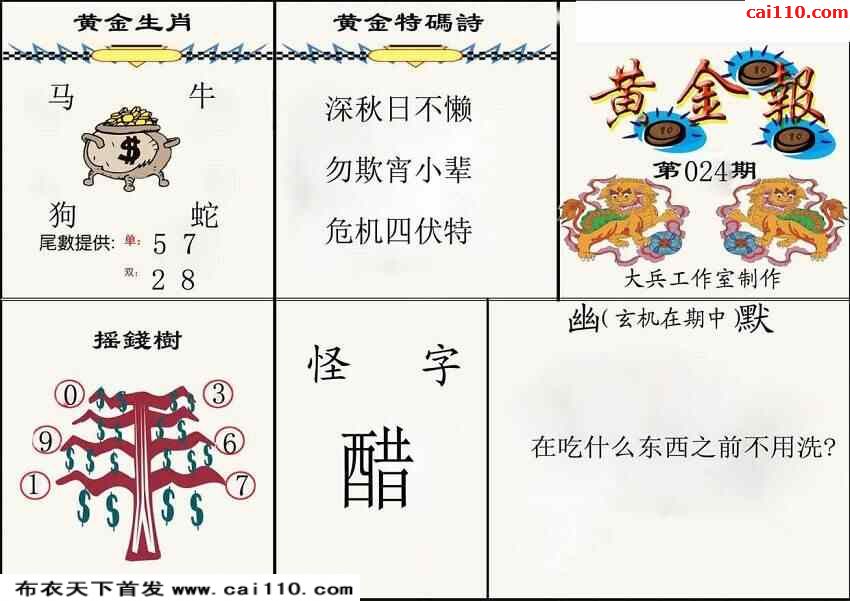 黄金生肖
马 牛
$
狗 蛇
尾數提供: 单: 5 7
双: 2 8
黄金特碼詩
深秋日不懒
勿欺宵小辈
危机四伏特
cai110.com
黄金報
10
10
10
第024期
大兵工作室制作
摇錢樹
0 3
$ $ $ $
$ $ $ $
9 6
$ $ $ $
1 7
$ $ $ $
布衣天下首发 www.cai110.com
怪 字
醋
幽(玄机在期中)默
在吃什么东西之前不用洗?